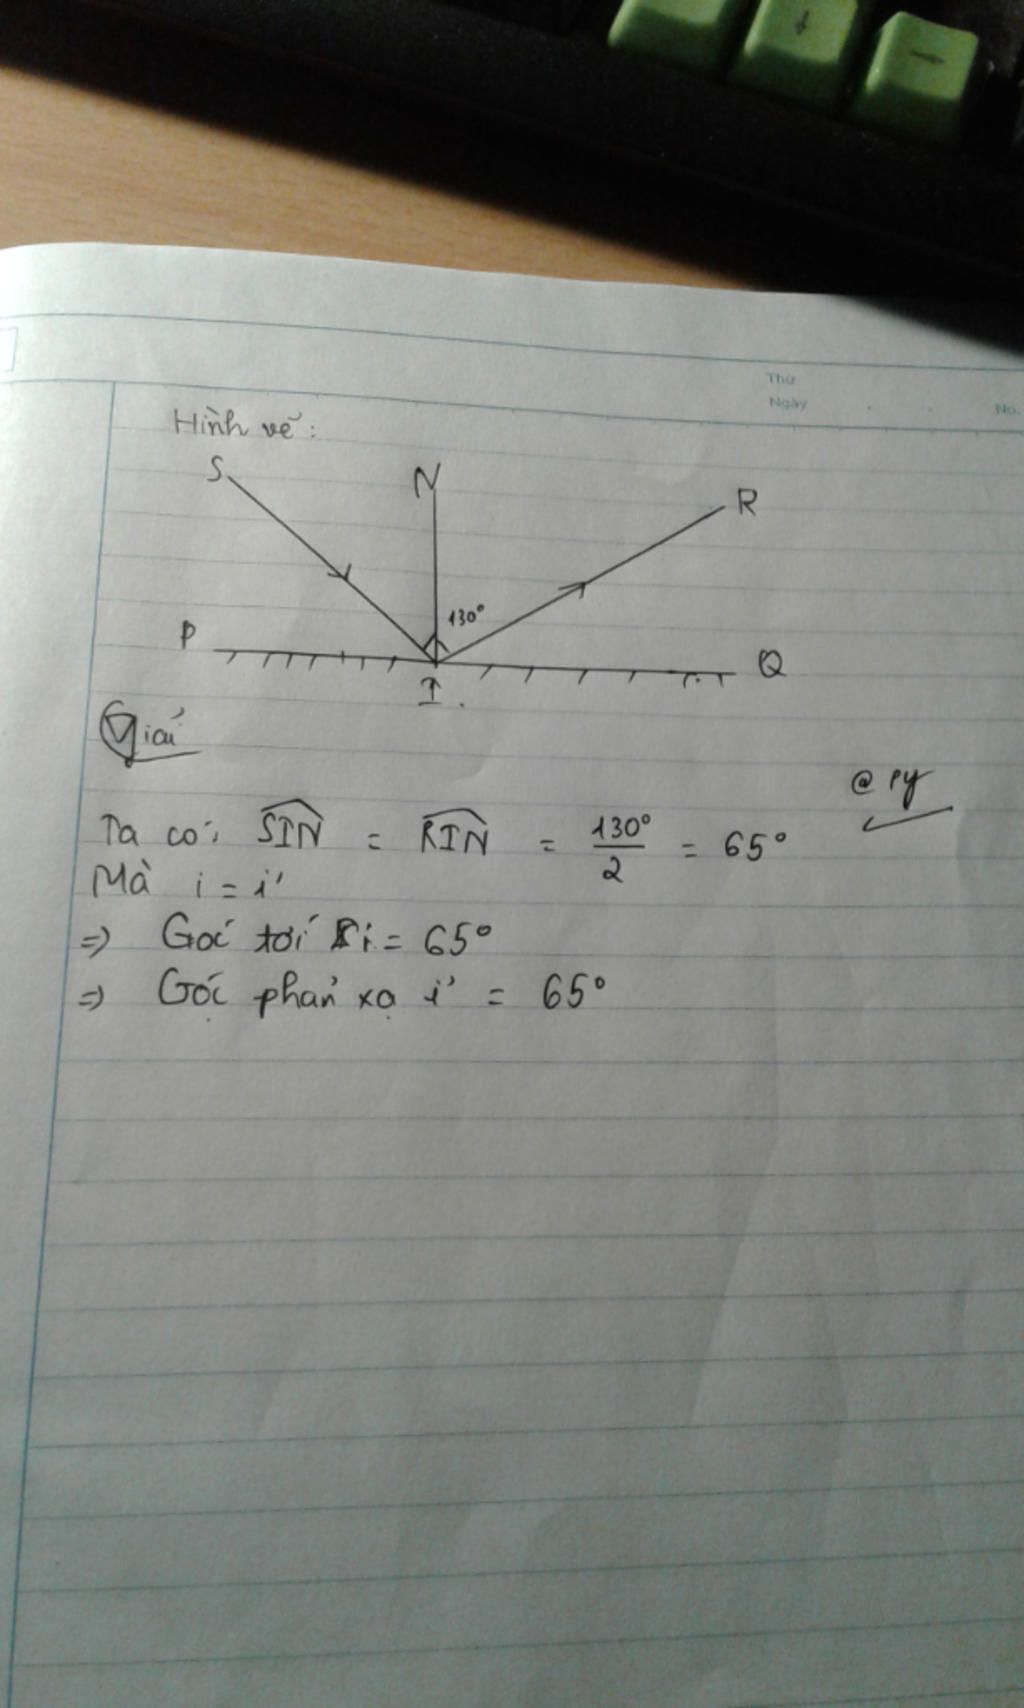 Thứ
Ngày
No.
Hình vẽ:
S
N
R
130°
P
Q
I
Giải
@ Py
Ta có: SIN = RIN = 130°/2 = 65°
Mà i = i'
=> Góc tới i = 65°
=> Góc phản xạ i' = 65°